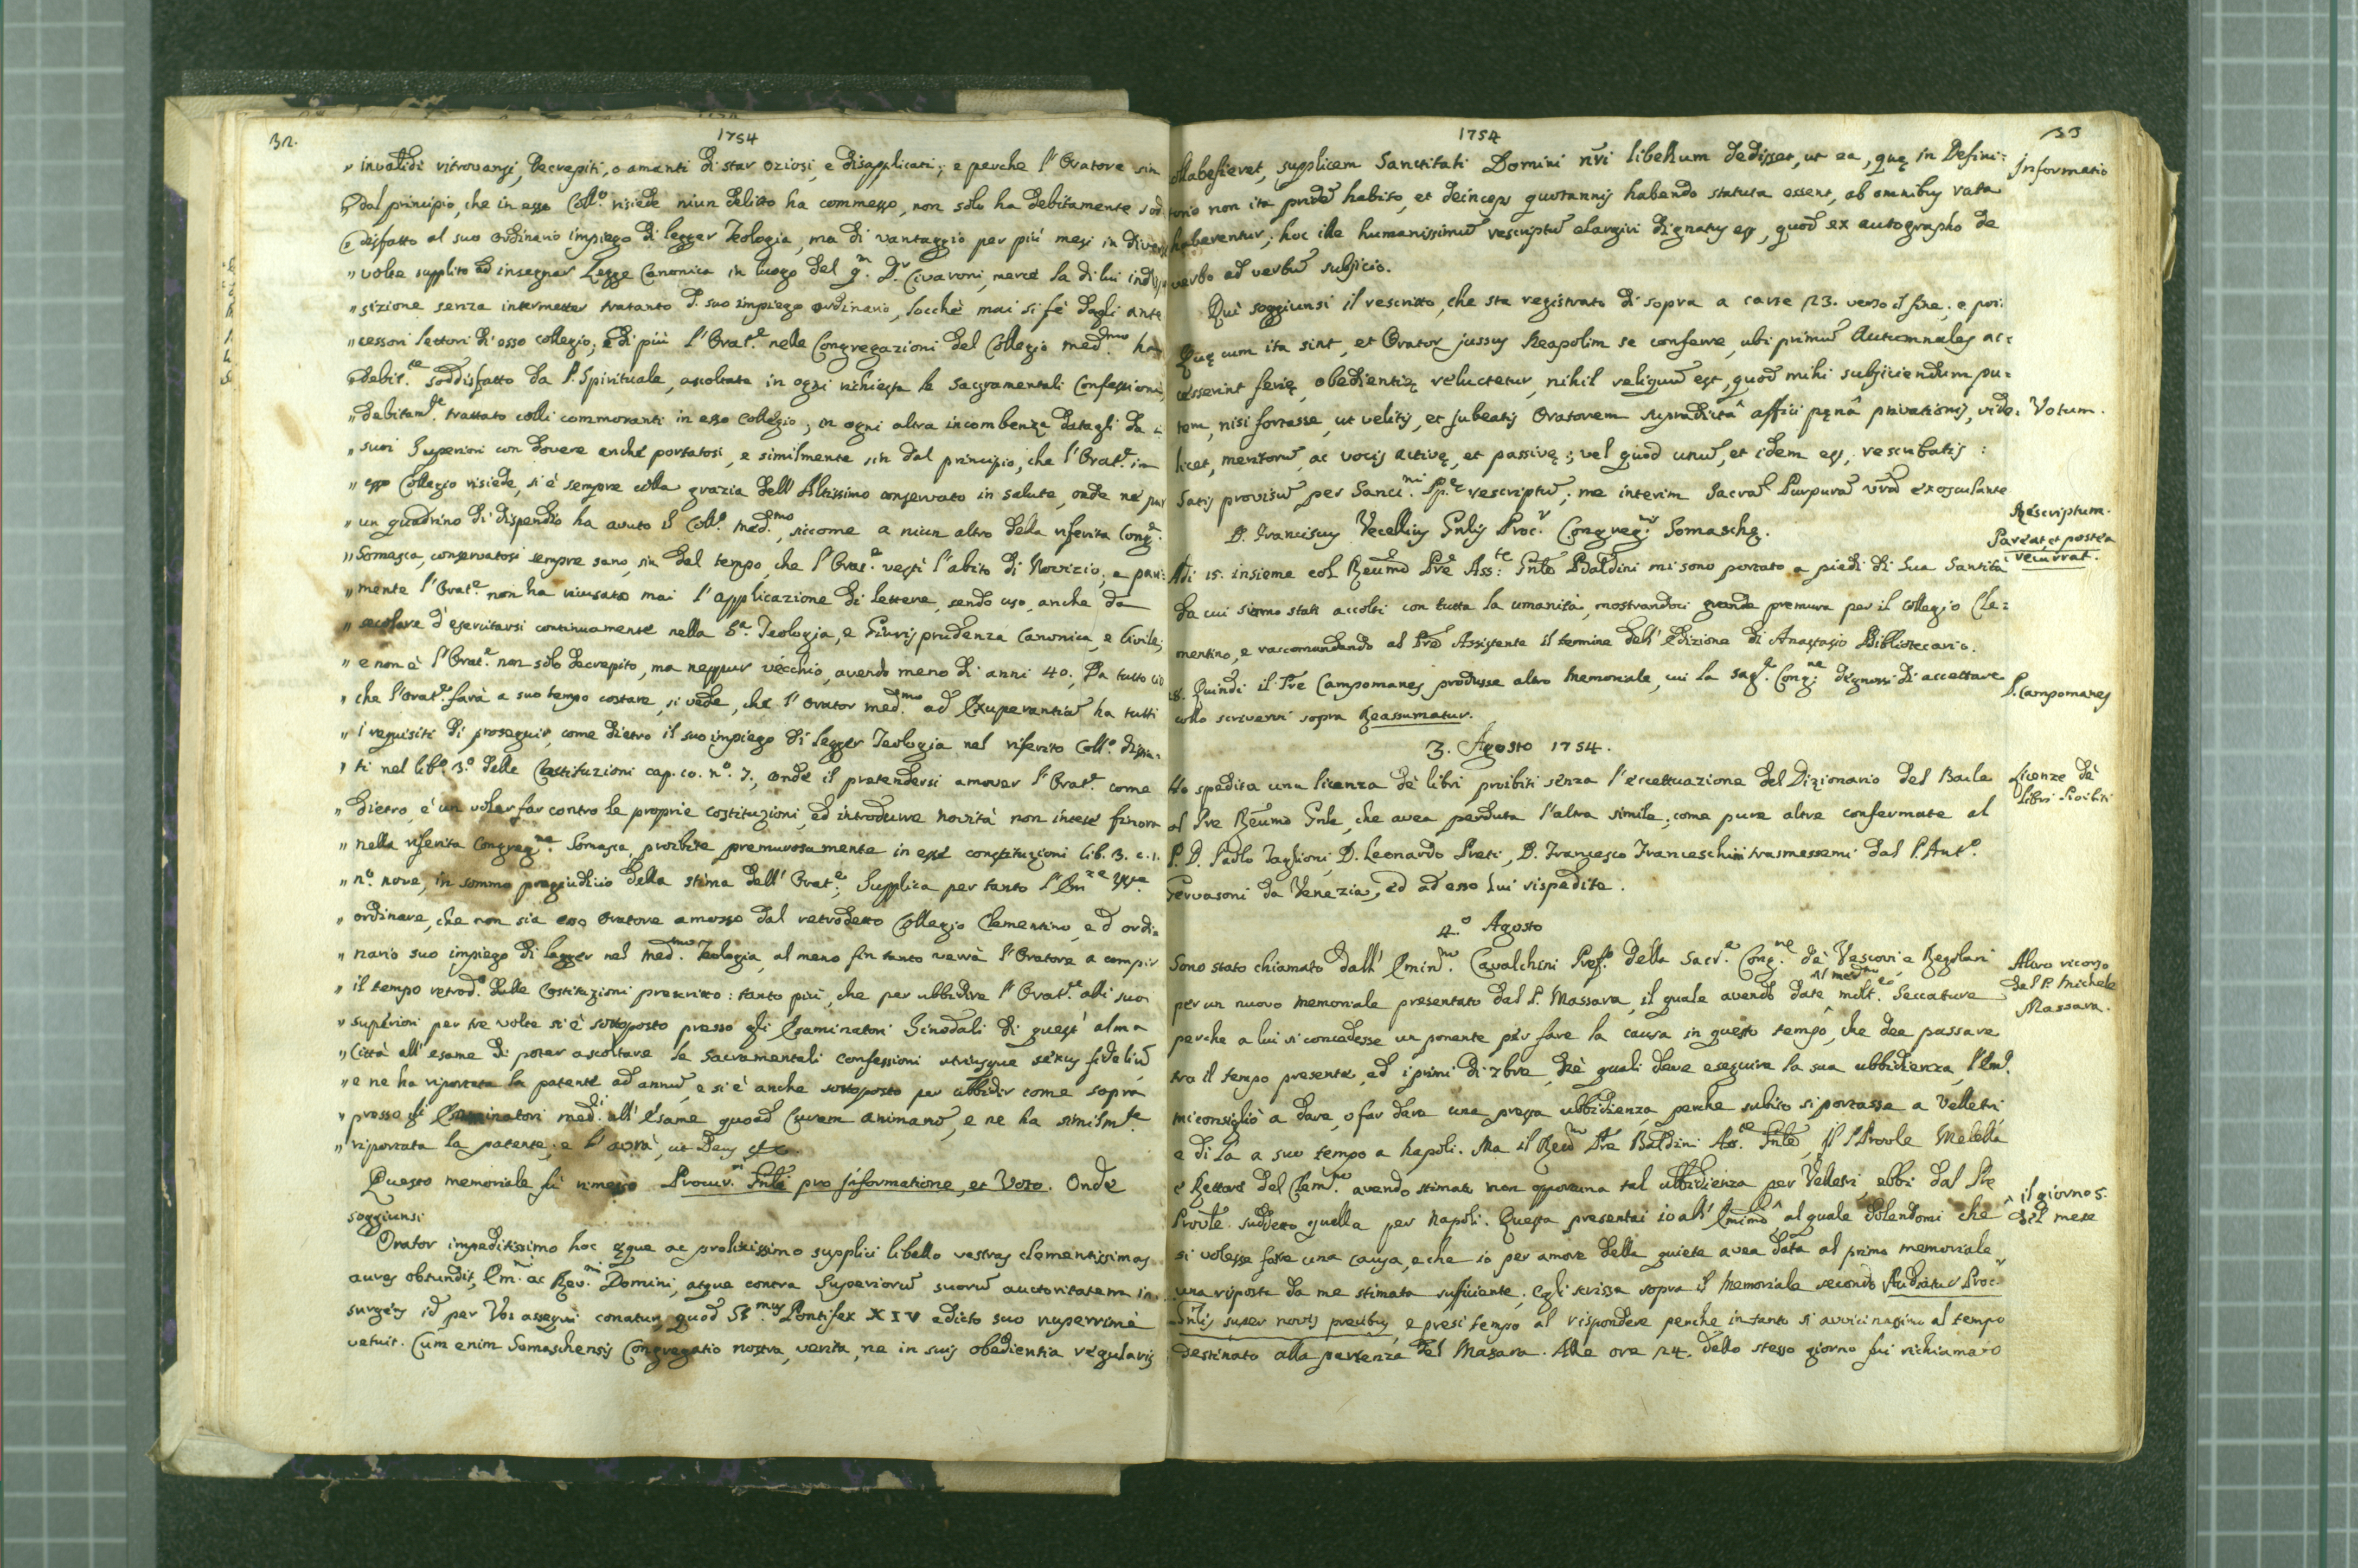 32.
1754
" invalidi ritrovansi, decrepiti, o amanti di star oziosi, e disapplicati; e perche l'Oratore sin
" dal principio, che in esso Coll.o risiede niun delitto ha commesso, non solo ha debitamente sod
" disfatto al suo ordinario impiego di legger Teologia, ma di vantaggio per più mesi in diverse
" volte supplito ad insegnar Legge Canonica in luogo del q.m D.r Civaroni, mercè la di lui indispo
" sizione senza intermetter tratanto d. suo impiego ordinario, locchè mai si fè dagli ante
" cessori lettori d'esso collegio; e di più l'Orat.e nelle Congregazioni del Collegio med.mo ha
" debit.te soddisfatto da P. Spirituale, ascoltate in ogni richiesta le Sacramentali Confessioni,
" debitam.e trattato colli commoranti in esso Collegio; in ogni altra incombenza datagli da i
" suoi Superiori con dovere anche portatosi, e similmente sin dal principio, che l'Orat.e in
" esso Collegio risiede, si è sempre colla grazia dell'Altissimo conservato in salute, onde nè pur
" un quadrino di dispendio ha avuto il Coll.o med.mo, siccome a niun altro della riferita Cong.e
" Somasca, conservatosi sempre sano, sin dal tempo, che l'Orat.e vestì l'abito di Novizio; e pari:
" mente l'Orat.e non ha riusato mai l'applicazione di lettere, sendo uso, anche da
" secolare d'esercitarsi continuamente nella S.a Teologia, e Giurisprudenza Canonica, e Civile;
" e non è l'Orat.e non solo decrepito, ma neppur vecchio, avendo meno di anni 40. Da tutto ciò
" che l'Orat.e farà a suo tempo costare, si vede, che l'Orator med.mo ad Exuperantiam ha tutti
" i requisiti di proseguir, come dietro il suo impiego di legger Teologia nel riferito Coll.o
" ti nel lib.o 3.o delle Costituzioni cap. 10. n.o 7; onde il pretendersi amover l'Orat.e come
" dietro, è un voler far contro le proprie costituzioni, ed introdurre novità non intese finora
" nella riferita Congreg.ne Somasca, proibite premurosamente in esse constituzioni lib. 3. c. 1.
" n.o nove, in sommo pregiudizio della stima dell'Orat.e; Supplica per tanto l'Em.ze VV.e
" ordinare, che non sia esso Oratore amosso dal retrodetto Collegio Clementino, e d'ordi=
" nario suo impiego di legger nel med.mo Teologia, al meno fin tanto verrà l'Oratore a compir
" il tempo retrod.o dalle Costituzioni prescritto: tanto più, che per ubbidire l'Orat.e alli suoi
" superiori per tre volte si è sottoposto presso gli Esaminatori Sinodali di quest'alma
" Città all'esame di poter ascoltare le Sacramentali Confessioni utriusque sexus fidelium
" e ne ha riportata la patente ad annum, e si è anche sottoposto per ubbidir come sopra
" presso gli Esaminatori med.di all'esame quoad Curam animarum, e ne ha similm.te
" riportata la patente; e l'avrà, ut Deus &c.
Questo memoriale fù rimesso Procur.ri Gnli pro informatione, et Voto. Onde
soggiunsi
Orator impeditissimo hoc æque ac prolixissimo supplici libello vestras clementissimas
aures obtundit, Em.mi ac Rev.mi Domini, atque contra Superiorum suorum auctoritatem in=
surgens id per Vos assequi conatur, quod SS.mus Pontifex XIV edicto suo nuperrimè
vetuit. Cum enim Somaschensis Congregatio nostra, verita, ne in suis obedientia regularis
1754
33
labefieret, supplicem Sanctitati Domini nri libellum dedisset, ut ea, quę in Defini=
torio non ita pridem habito, et deinceps quotannis habendo statuta essent, ab omnibus rata
haberentur; hoc ille humanissimum rescriptum elargiri dignatus est, quod ex autographo de
verbo ad verbum subjicio.
Informatio
Quì soggiunsi il rescritto, che sta registrato di sopra a carte 23. verso il fine; e poi:
Quę cum ita sint, et Orator jussus Neapolim se conferre, ubi primum Autumnales ac=
cesserint ferię, obedientię reluctetur, nihil reliquum est, quod mihi subjiciendum pu=
tem, nisi fortasse, ut velitis, et jubeatis Oratorem supradictâ affici pęnâ privationis, vide=
licet, meritorum, ac vocis activę, et passivę; vel quod unum, et idem est, rescribatis:
Satis provisum per Sanct.mi Sp.e rescriptum; me interim Sacram Purpuram vram exosculante
Votum.
D. Franciscus Vecellius Gnlis Proc.r Congreg.nis Somaschę.
Rescriptum.
Pareat, et postea
recurrat.
Adi 15. insieme col Reumo Pre Ass.te Gnle Baldini mi sono portato a piedi di Sua Santità
da cui siamo stati accolti con tutta la umanità, mostrandoci grande premura per il Collegio Cle=
mentino, e raccomandando al Pre Assistente il termine dell'edizione di Anastasio Bibliotecario.
18. Quindi il Pre Campomanes produsse altro Memoriale, cui la Sag.e Cong.ne degnossi di accettare
collo scrivervi sopra Reassumatur.
P. Campomanes
3. Agosto 1754.
Ho spedita una licenza de libri proibiti senza l'eccettuazione del Dizionario del Baile
al Pre Reumo Gnle, che avea perduta l'altra simile; come pure altre confermate al
P. D. Paolo Taglioni, D. Leonardo Preti, D. Francesco Franceschini trasmessemi dal P. Ant.o
Gervasoni da Venezia, ed ad esso lui rispedite.
Licenze de
Libri Proibiti
4.o Agosto
Sono stato chiamato dall'Emin.mo Cavalchini Pref.o della Sacr.a Cong.ne de Vescovi, e Regolari
per un nuovo memoriale presentato dal P. Massara, il quale avendo date al med.mo molt.e seccature
perche a lui si concedesse un ponente per fare la causa in questo tempo, che dee passare
tra il tempo presente, ed i primi di 7bre, ne' quali deve eseguire la sua ubbidienza, l'Em.o
mi consigliò a dare, o far dare una pressa ubbidienza, perche subito si portasse a Velletri
e di là a suo tempo a Napoli. Ma il Reu.mo Pre Baldini Ass.te Gnle, il P. Provle Melella
e Rettore del Clem.no avendo stimata non opportuna tal ubbidienza per Velletri, ebbi dal Pre
Provle suddetto quella per Napoli. Questa presentai io all'Emimo ^ al quale dolendomi che
si volesse fare una causa, e che io per amore della quiete avea data al primo memoriale
una risposta da me stimata sufficiente, egli scrisse sopra il Memoriale secondo Audiatur Proc.r
Gnlis super novis precibus, e presi tempo al rispondere perche intanto si avvicinassimo al tempo
destinato alla partenza del Massara. Alle ore 24. dello stesso giorno fui richiamato
Altro ricorso
del P. Michele
Massara.
^ il giorno 5.
del mese